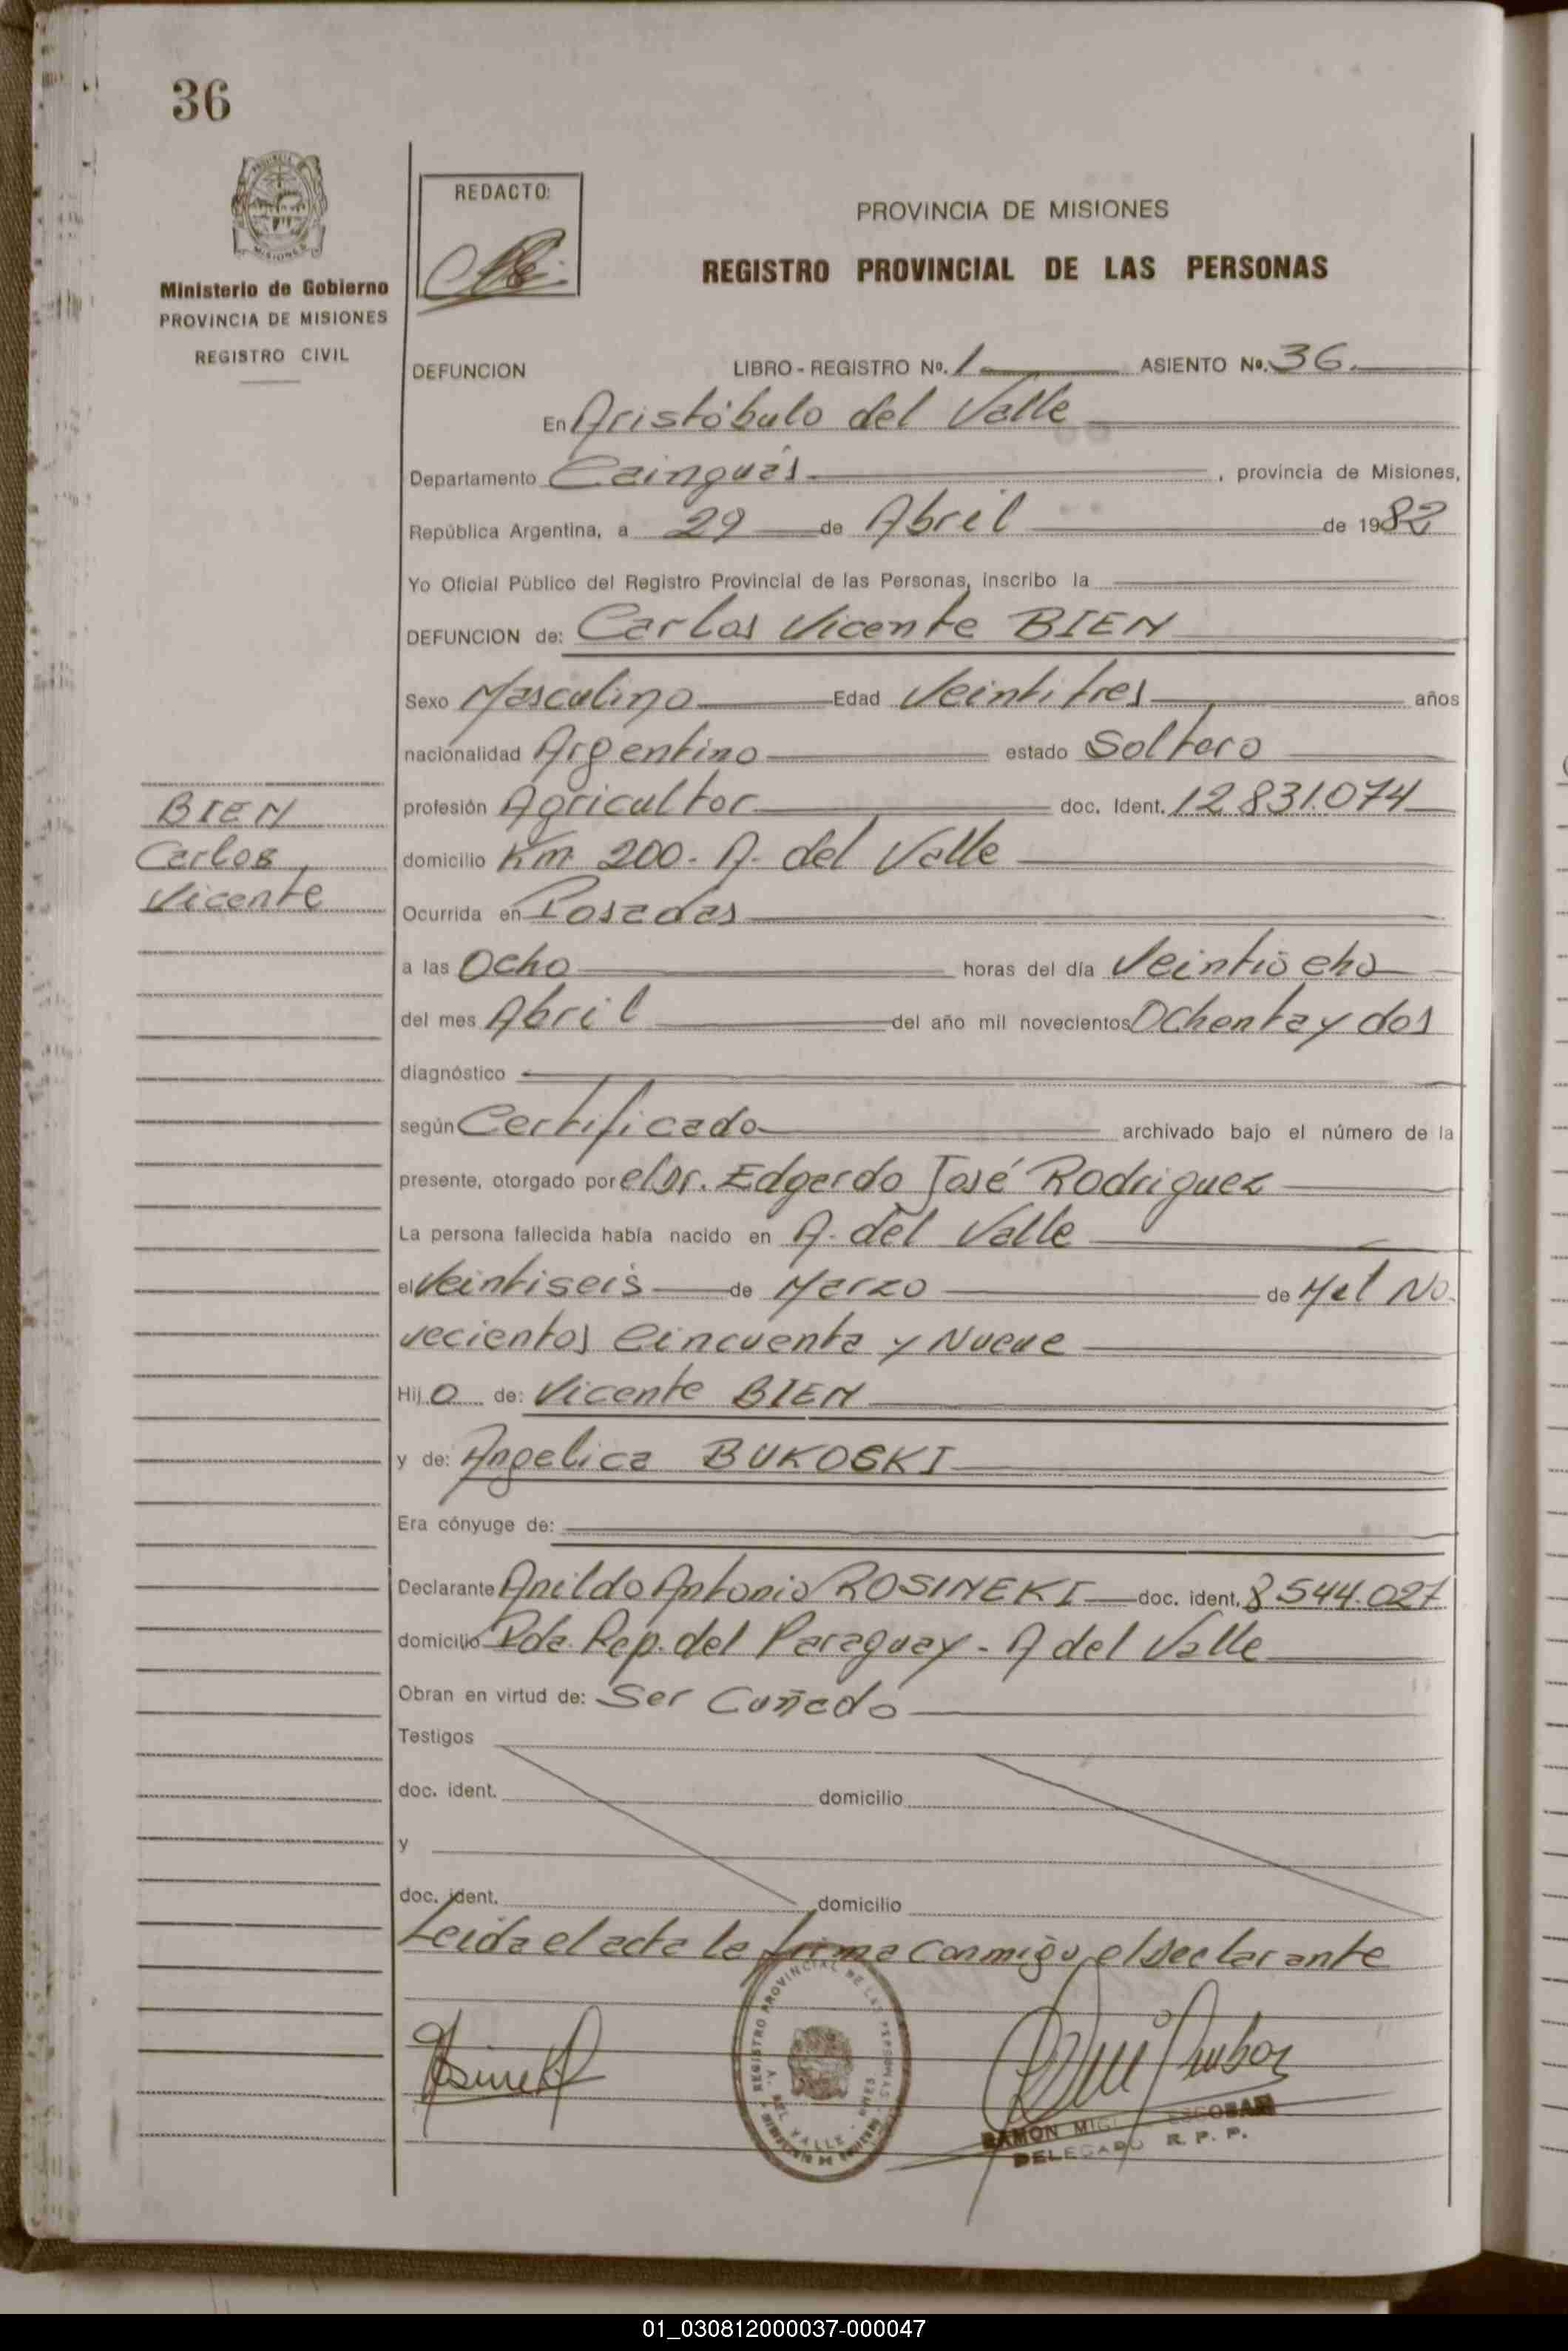 36
MISIONES
Ministerio de Gobierno
PROVINCIA DE MISIONES
REGISTRO CIVIL
REDACTO:
PROVINCIA DE MISIONES
REGISTRO PROVINCIAL DE LAS PERSONAS
DEFUNCION LIBRO - REGISTRO No. 1 ASIENTO No. 36.
En Aristóbulo del Valle
Departamento Cainguás , provincia de Misiones,
República Argentina, a 29 de Abril de 1982
Yo Oficial Público del Registro Provincial de las Personas, inscribo la
DEFUNCION de: Carlos Vicente BIEN
Sexo Masculino Edad Veintitres años
nacionalidad Argentino estado Soltero
BIEN
Carlos
Vicente
profesión Agricultor doc. Ident. 12.831.074
domicilio Km 200 - A. del Valle
Ocurrida en Posadas
a las Ocho horas del día Veintiocho
del mes Abril del año mil novecientos Ochenta y dos
diagnóstico
según Certificado archivado bajo el número de la
presente, otorgado por el Dr. Edgardo José Rodriguez
La persona fallecida había nacido en A. del Valle
el Veintiseis de Marzo de Mil No
vecientos Cincuenta y Nueve
Hij o de: Vicente BIEN
y de: Angelica BUKOSKI
Era cónyuge de:
Declarante Anildo Antonio ROSINEKI doc. ident. 8.544.027
domicilio Pda. Rep. del Paraguay - A del Valle
Obran en virtud de: Ser Cuñado
Testigos
doc. ident. domicilio
y
doc. ident. domicilio
Leida el acta la firma conmigo el declarante
REGISTRO PROVINCIAL DE LAS PERSONAS
A. DEL VALLE
RAMON MIG ESCOBAR
DELEGADO R. P. P.
01_030812000037-000047